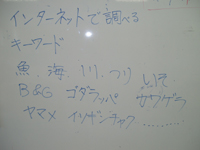 インターネットで調べる
キーワード
魚、海、川、つり、いそ
B&G ゴダラッパ サワゲラ
ヤマメ イソギンチャク………